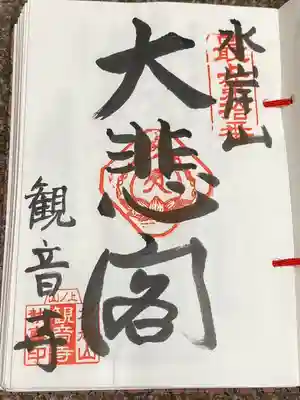 水岸山
大悲閣
観音寺